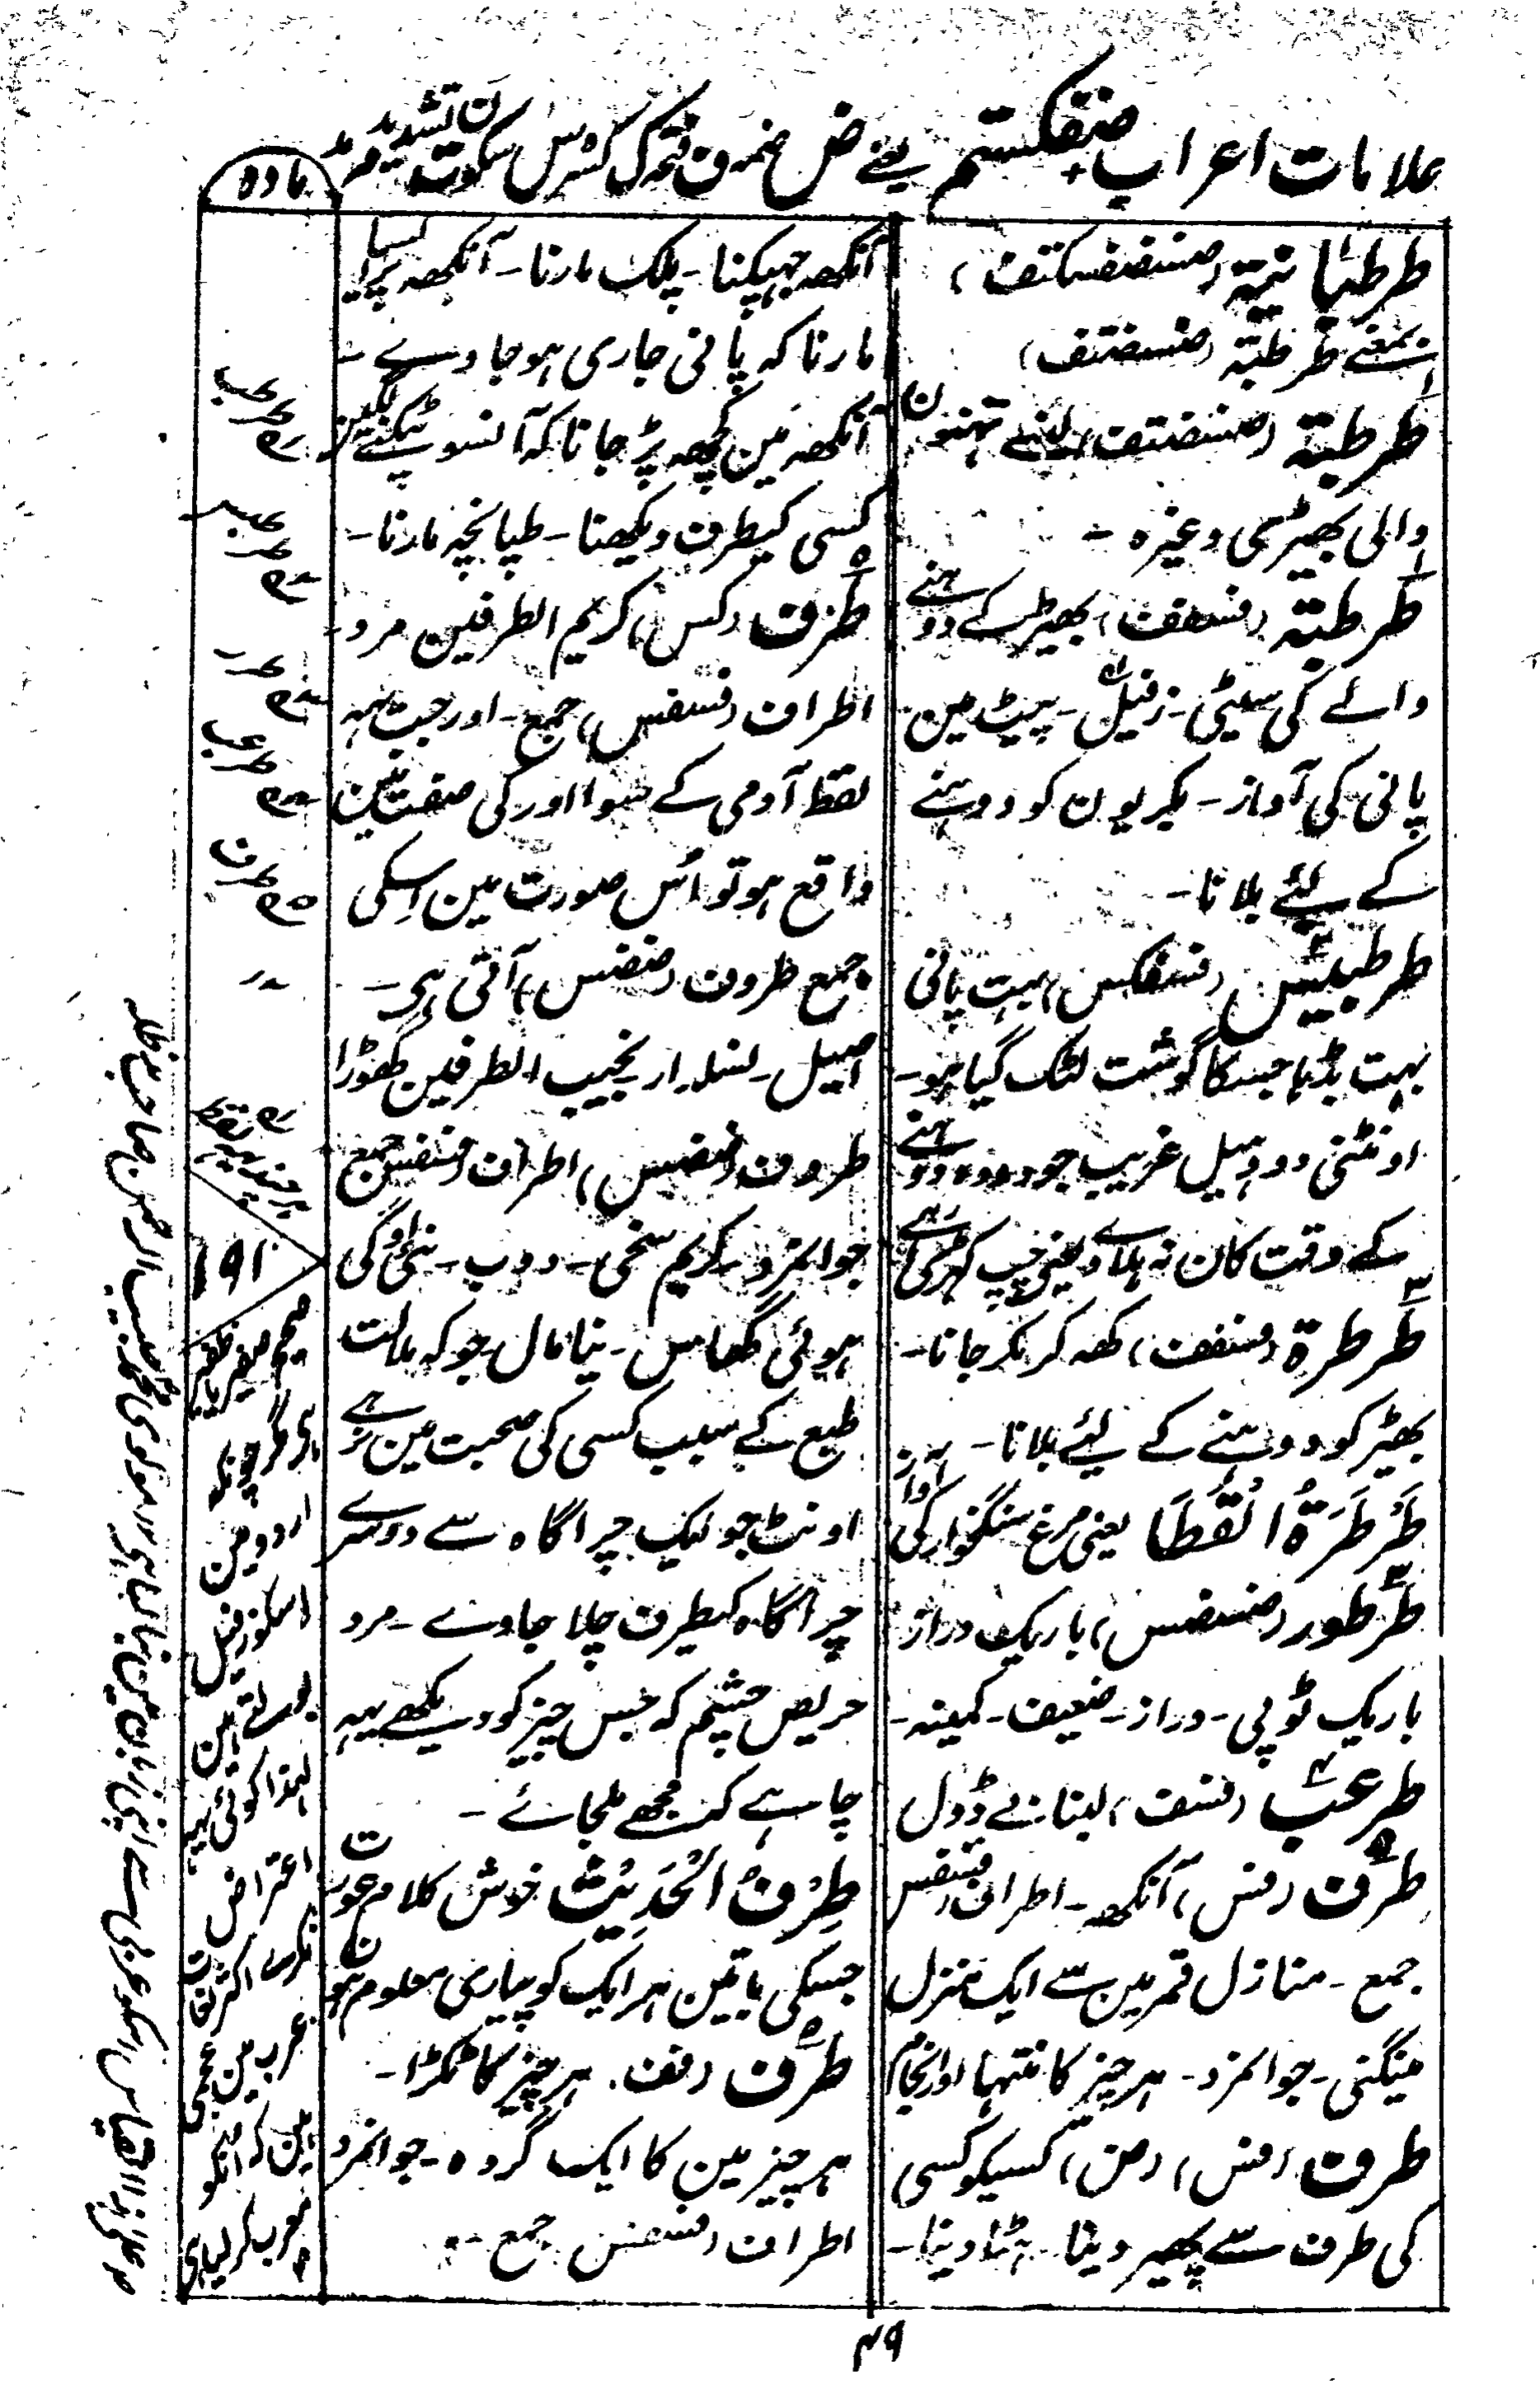 علامات اعراب ضفکستم یعنے ض ضمہ ف فتحہ ک کسرہ س سکون ت تشدید م مد
مادہ
طرطبانیۃ (ضسضفسکتف)
بمعنے طرطبۃ (ضسضتف)
طرطبۃ (ضسضتف) لنبے تہنون
والی بھیڑی وغیرہ -
طرطبۃ (فسفف) بھیڑ کے دوہنے
والے کی سیٹی - زفیل - پیٹ مین
پانی کی آواز - بکریون کو دوہنے
کے لئے بلانا -
طرطبیس (فسفکس) بہت پانی
بہت بڈہا جسکا گوشت لٹک گیا ہو -
اونٹنی دودہیل غریب جو دودہ دوہنے
کے وقت کان نہ ہلاوے یعنی چپ کہڑی رہے
طرطرۃ (فسفف) کھہ کر مکر جانا -
بھیڑ کو دوہنے کے لئے بلانا -
طَرْطَرَۃُ الْقَطَا یعنی مرغ سنگخوار کی آواز
طرطور (ضسضس) باریک دراز
باریک ٹوپی - دراز - ضعیف - کمینہ -
طرعب (فسف) لنبا بے ڈول
طرف (فس) آنکھہ - اطراف (فسفس)
جمع - منازل قمر مین سے ایک منزل
مینگنی - جوانمرد - ہر چیز کا منتہا اور انجام
طرف (فس) (ض) کسیکو کسی
کی طرف سے پھیر دینا - ہٹا دینا -
آنکھہ جہپکنا - پلک مارنا - آنکھہ پر ایسا
مارنا کہ پانی جاری ہو جاوے -
آنکھہ مین کچھہ پڑ جانا کہ آنسو ٹپکنے لگین
کسی کیطرف دیکھنا - طپانچہ مارنا -
طرف (کس) کریم الطرفین مرد -
اطراف (فسفس) جمع - اور جب یہہ
لفظ آدمی کے سوا اور کی صفت مین
واقع ہو تو اُس صورت مین اِسکی
جمع طروف (ضضس) آتی ہی -
اصیل - نسلدار نجیب الطرفین گھوڑا
طروف (ضضس) اطراف (فسفس) جمع
جوانمرد - کریم سخی - دوب - نئی اوگی
ہوئی گھاس - نیا مال جو کہ ملالت
طبع کے سبب کسی کی صحبت مین نرہے
اونٹ جو ایک چراگاہ سے دوسرے
چراگاہ کیطرف چلا جاوے - مرد
حریص چشم کہ جس چیز کو دیکھے یہہ
چاہے کہ مجھے ملجائے -
طِرْفُ الْحَدِیْثِ خوش کلام عورت
جسکی باتین ہر ایک کو پیاری معلوم ہون
طرف (فف) ہر چیز کا ٹکڑا -
ہر چیز مین کا ایک گروہ - جوانمرد
اطراف (فسفس) جمع -
۱۹۱
صحیح صفیر
ہی مگر چونکہ
اردو مین
اسکو زفیل
بولتے ہین
لہذا کوئی یہہ
اعتراض
نکرے اکثر لغات
عرب مین عجمی
ہین کہ انکو
معرب کر لیا ہی
۴۹